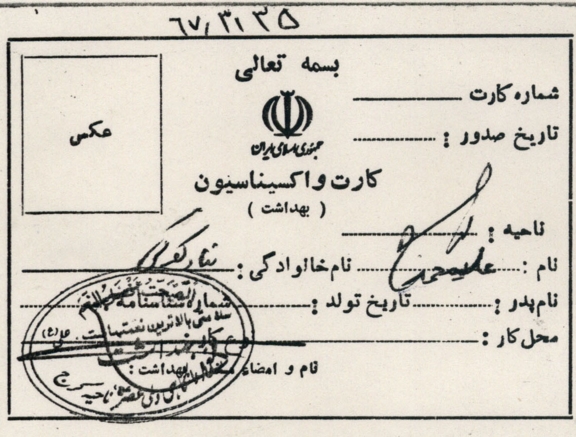 ۶۷/۳۱۳۵
بسمه تعالی
عکس
شماره کارت
جمهوری اسلامی ایران
تاریخ صدور :
کارت واکسیناسیون
( بهداشت )
ناحیه :
نام : نام خانوادگی :
نام پدر : تاریخ تولد : شماره شناسنامه
محل کار :
سلامتی بالاترین نعمتهاست علی (ع)
نام و امضاء بهداشت :
ناحیه کرج